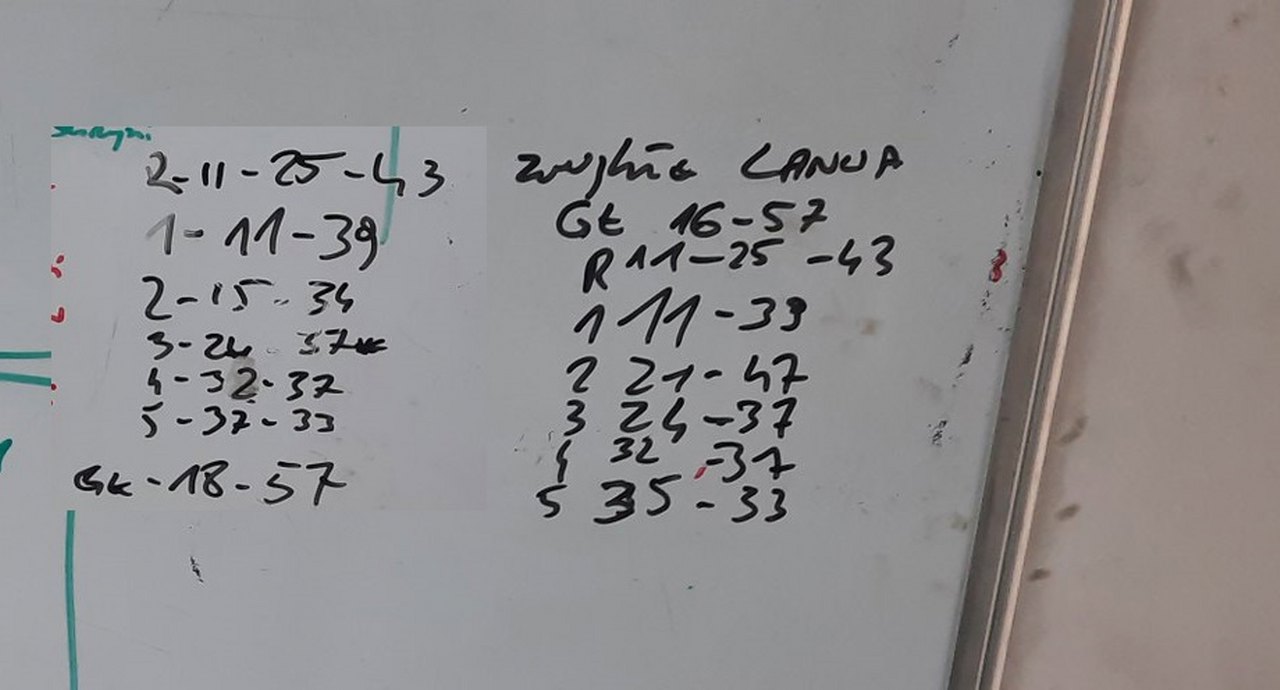 2-11-25-43
1-11-39
2-15-34
3-24 37
4-32-37
5-37-33
Gk-18-57
LANCIA
Gk 16-57
R 11-25-43
1 11-39
2 21-47
3 24-37
4 32-37
5 35-33